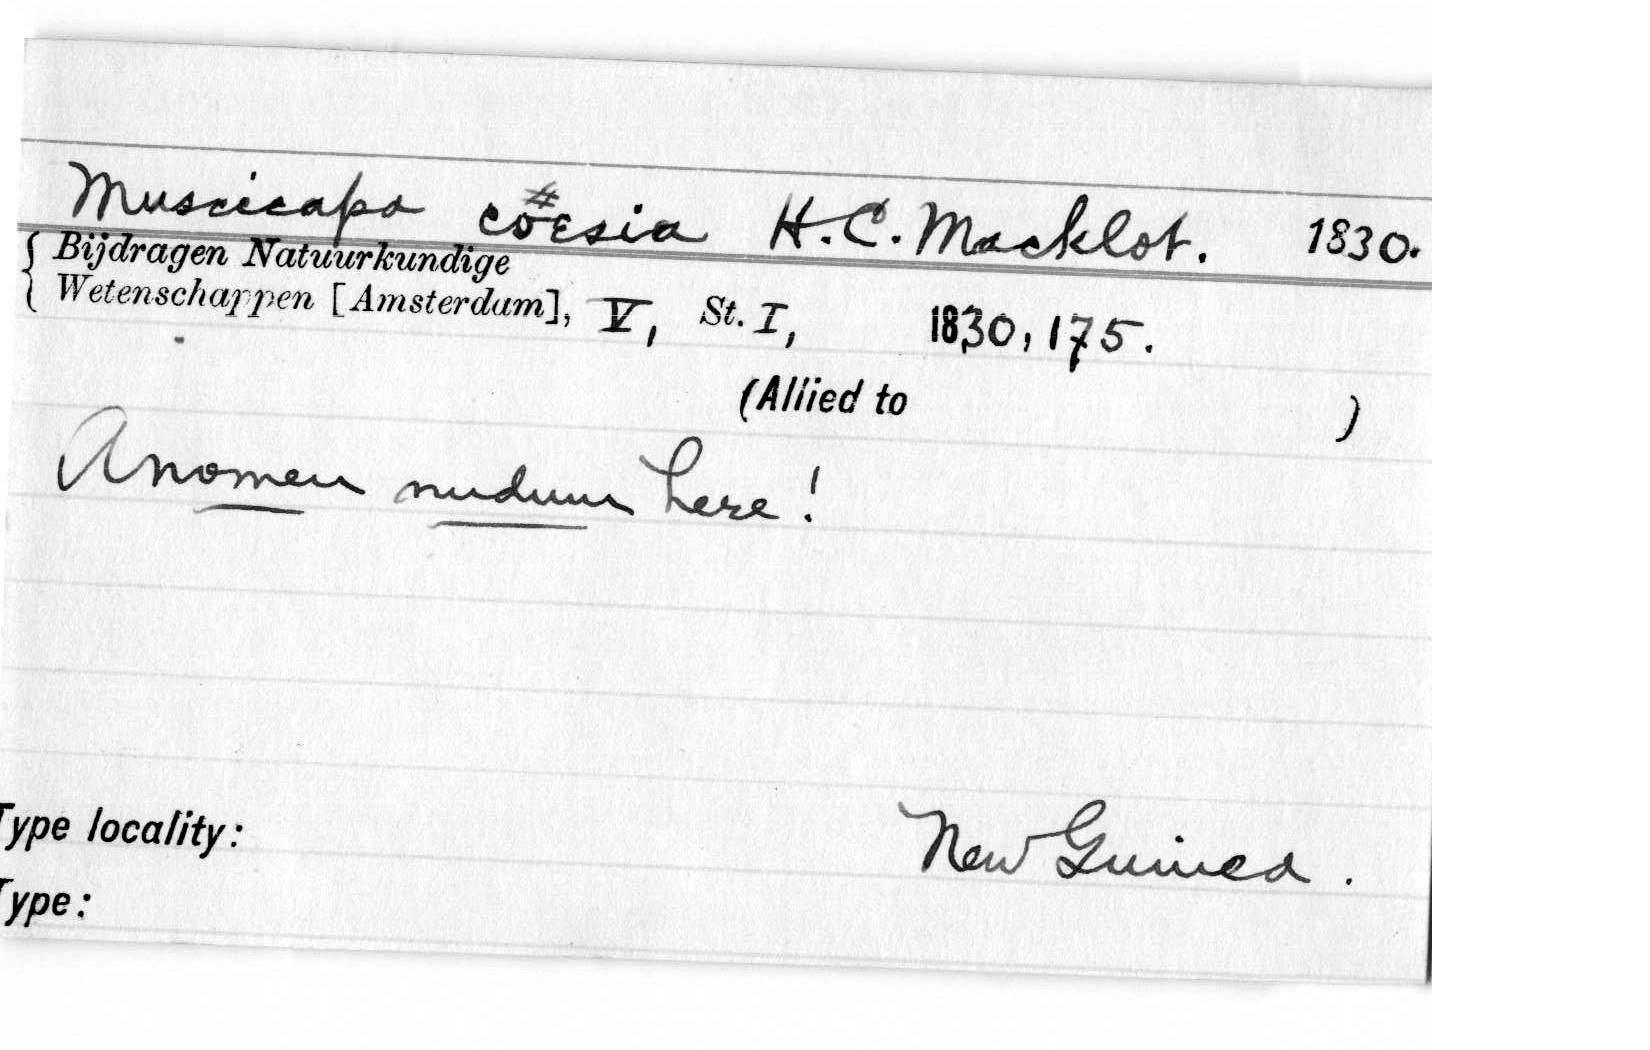 Muscicapa coesia H.C. Macklot. 1830.
Bijdragen Natuurkundige
Wetenschappen [Amsterdam], V, St. I, 1830, 175.
(Allied to )
A nomen nudum here!
Type locality: New Guinea.
Type: